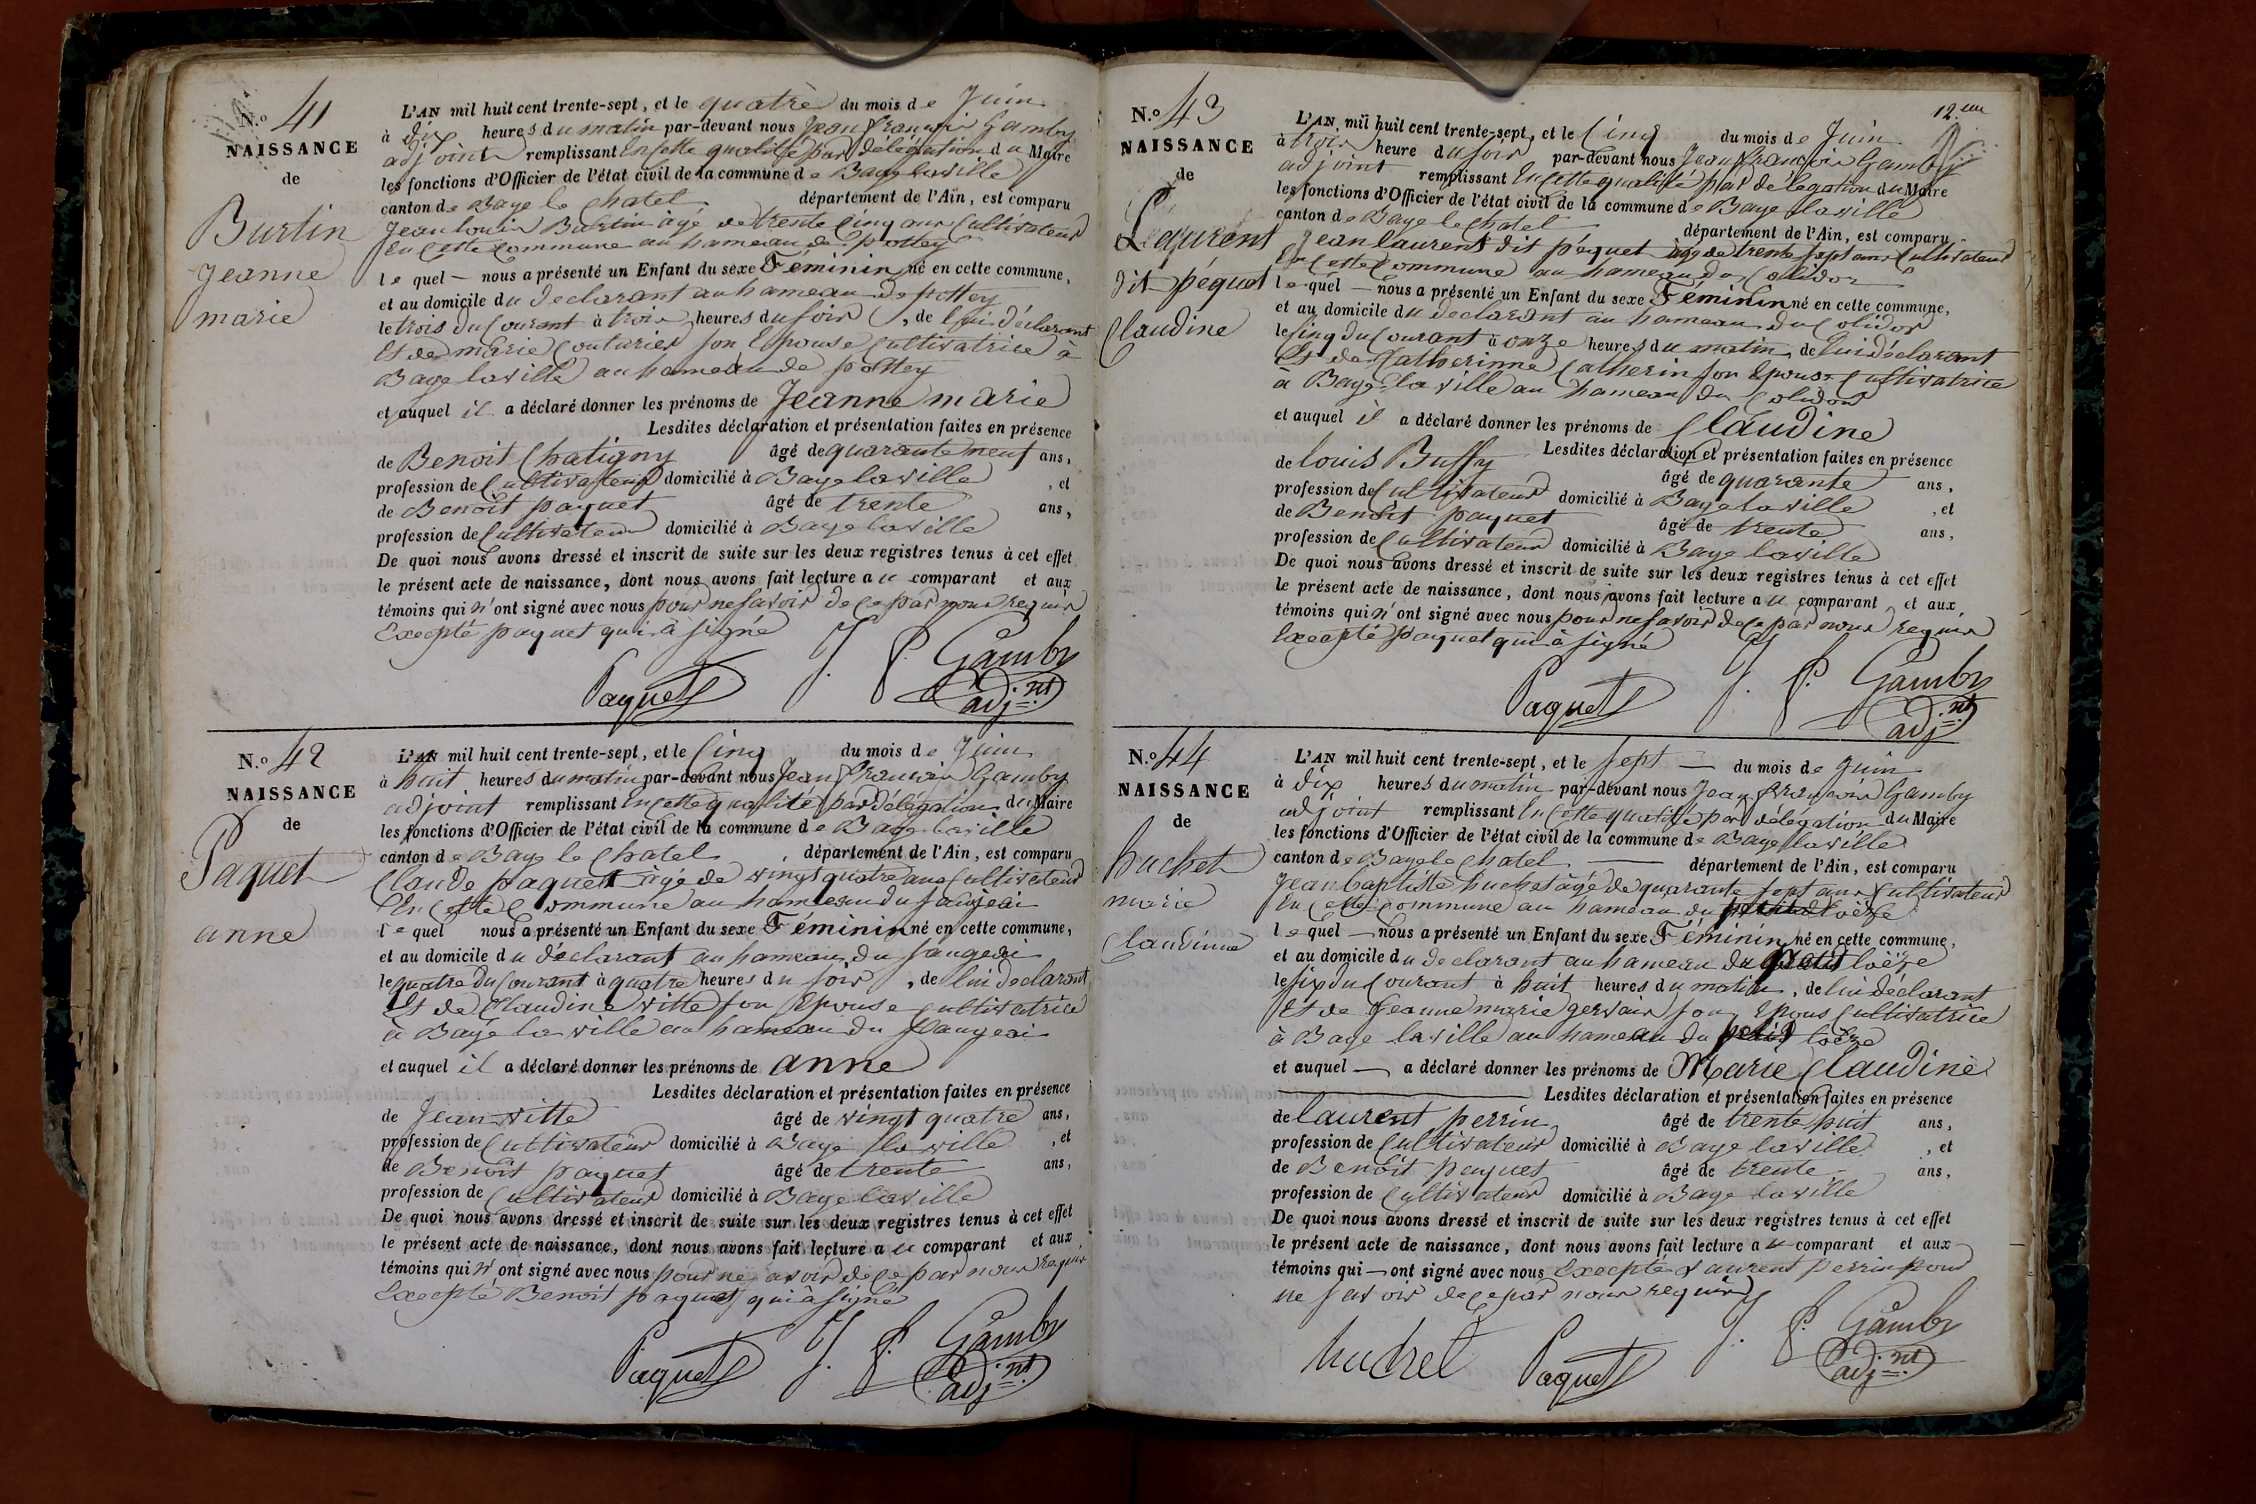 N.o 41
NAISSANCE
de
Burtin
Jeanne
marie
L'AN mil huit cent trente-sept, et le quatre du mois de Juin
à dix heures du matin par-devant nous Jean françois Gamby
adjoint remplissant En cette qualité par délégation du Maire
les fonctions d'Officier de l'état civil de la commune de Bage laville
canton de Bage le chatel département de l'Ain, est comparu
Jean louis Burtin âgé de trente Cinq ans Cultivateur
En Cette Commune au hameau de pottey
lequel — nous a présenté un Enfant du sexe Féminin né en cette commune,
et au domicile du declarant au hameau de pottey
le trois du Courant à trois heures du soir, de lui déclarant
Et de marie Couturier son Epouse Cultivatrice à
Bage laville au hameau de pottey
et auquel il a déclaré donner les prénoms de Jeanne marie
Lesdites déclaration et présentation faites en présence
de Benoit Chatigny âgé de quarante neuf ans,
profession de Cultivateur domicilié à Bage laville, et
de Benoit paquet âgé de trente ans,
profession de Cultivateur domicilié à Bage laville
De quoi nous avons dressé et inscrit de suite sur les deux registres tenus à cet effet
le présent acte de naissance, dont nous avons fait lecture au comparant et aux
témoins qui n'ont signé avec nous pour ne savoir de ce par nous requis
Excepté paquet qui à signé
Paquet J. f. Gamby
adj.nt
N.o 42
NAISSANCE
de
Paquet
anne
L'AN mil huit cent trente-sept, et le Cinq du mois de Juin
à huit heures du matin par-devant nous Jean françois Gamby
adjoint remplissant En cette qualité par délégation du Maire
les fonctions d'Officier de l'état civil de la commune de Bage laville
canton de Bage le chatel, département de l'Ain, est comparu
Claude paquet âgé de vingt quatre ans Cultivateur
En Cette Commune au hameau du saugeai
lequel nous a présenté un Enfant du sexe Féminin né en cette commune,
et au domicile du déclarant au hameau du saugeai
le quatre du Courant à quatre heures du soir, de lui declarant
Et de Claudine vitte son Epouse cultivatrice
à Bage la ville au hameau du saugeai
et auquel il a déclaré donner les prénoms de anne
Lesdites déclaration et présentation faites en présence
de Jean vitte âgé de vingt quatre ans,
profession de Cultivateur domicilié à Bage la ville, et
de Benoit paquet âgé de trente ans,
profession de Cultivateur domicilié à Bage laville
De quoi nous avons dressé et inscrit de suite sur les deux registres tenus à cet effet
le présent acte de naissance, dont nous avons fait lecture au comparant et aux
témoins qui n'ont signé avec nous pour ne savoir de ce par nous requis
Excepté Benoit paquet qui à signé
Paquet J. f. Gamby
adj.nt
12.eme
N.o 43
NAISSANCE
de
Laurent
dit péquet
Claudine
L'AN mil huit cent trente-sept, et le Cinq du mois de Juin
à trois heure du soir par-devant nous Jean françois Gamby
adjoint remplissant En cette qualité par délégation du Maire
les fonctions d'Officier de l'état civil de la commune de Bage laville
canton de Bage le chatel département de l'Ain, est comparu
Jean laurent dit péquet âgé de trente sept ans Cultivateur
En cette Commune au hameau du Colidor
lequel — nous a présenté un Enfant du sexe Féminin né en cette commune,
et au domicile du declarant au hameau du Colidor
le Cinq du Courant à onze heures du matin, de lui déclarant
Et de Catherinne Catherin son Epouse Cultivatrice
à Bage la ville au hameau du Colidor
et auquel il a déclaré donner les prénoms de Claudine
Lesdites déclaration et présentation faites en présence
de louis Buffy âgé de quarante ans,
profession de Cultivateur domicilié à Bage laville, et
de Benoit paquet âgé de trente ans,
profession de Cultivateur domicilié à Bage laville
De quoi nous avons dressé et inscrit de suite sur les deux registres tenus à cet effet
le présent acte de naissance, dont nous avons fait lecture au comparant et aux
témoins qui n'ont signé avec nous pour ne savoir de ce par nous requis
Excepté paquet qui à signé
Paquet J. f. Gamby
adj.nt
N.o 44
NAISSANCE
de
huchet
marie
Claudinne
L'AN mil huit cent trente-sept, et le sept — du mois de Juin
à dix heures du matin par-devant nous Jean françois Gamby
adjoint remplissant En cette qualité par délégation du Maire
les fonctions d'Officier de l'état civil de la commune de Bage laville
canton de Bage le chatel — département de l'Ain, est comparu
Jean baptiste huchet âgé de quarante sept ans Cultivateur
En Cette Commune au hameau du loëze
lequel — nous a présenté un Enfant du sexe Féminin né en cette commune,
et au domicile du declarant au hameau du petit loëze
le six du Courant à huit heures du matin, de lui déclarant
Et de Jeanne marie gervais son Epouse Cultivatrice
à Bage la ville au hameau du petit loëze
et auquel — a déclaré donner les prénoms de Marie Claudine
Lesdites déclaration et présentation faites en présence
de laurent perrin âgé de trente huit ans,
profession de Cultivateur domicilié à Bage laville, et
de Benoit paquet âgé de trente ans,
profession de Cultivateur domicilié à Bage laville
De quoi nous avons dressé et inscrit de suite sur les deux registres tenus à cet effet
le présent acte de naissance, dont nous avons fait lecture au comparant et aux
témoins qui — ont signé avec nous Excepté Laurent perrin pour
ne savoir de ce par nous requis
huchet Paquet J. f. Gamby
adj.nt